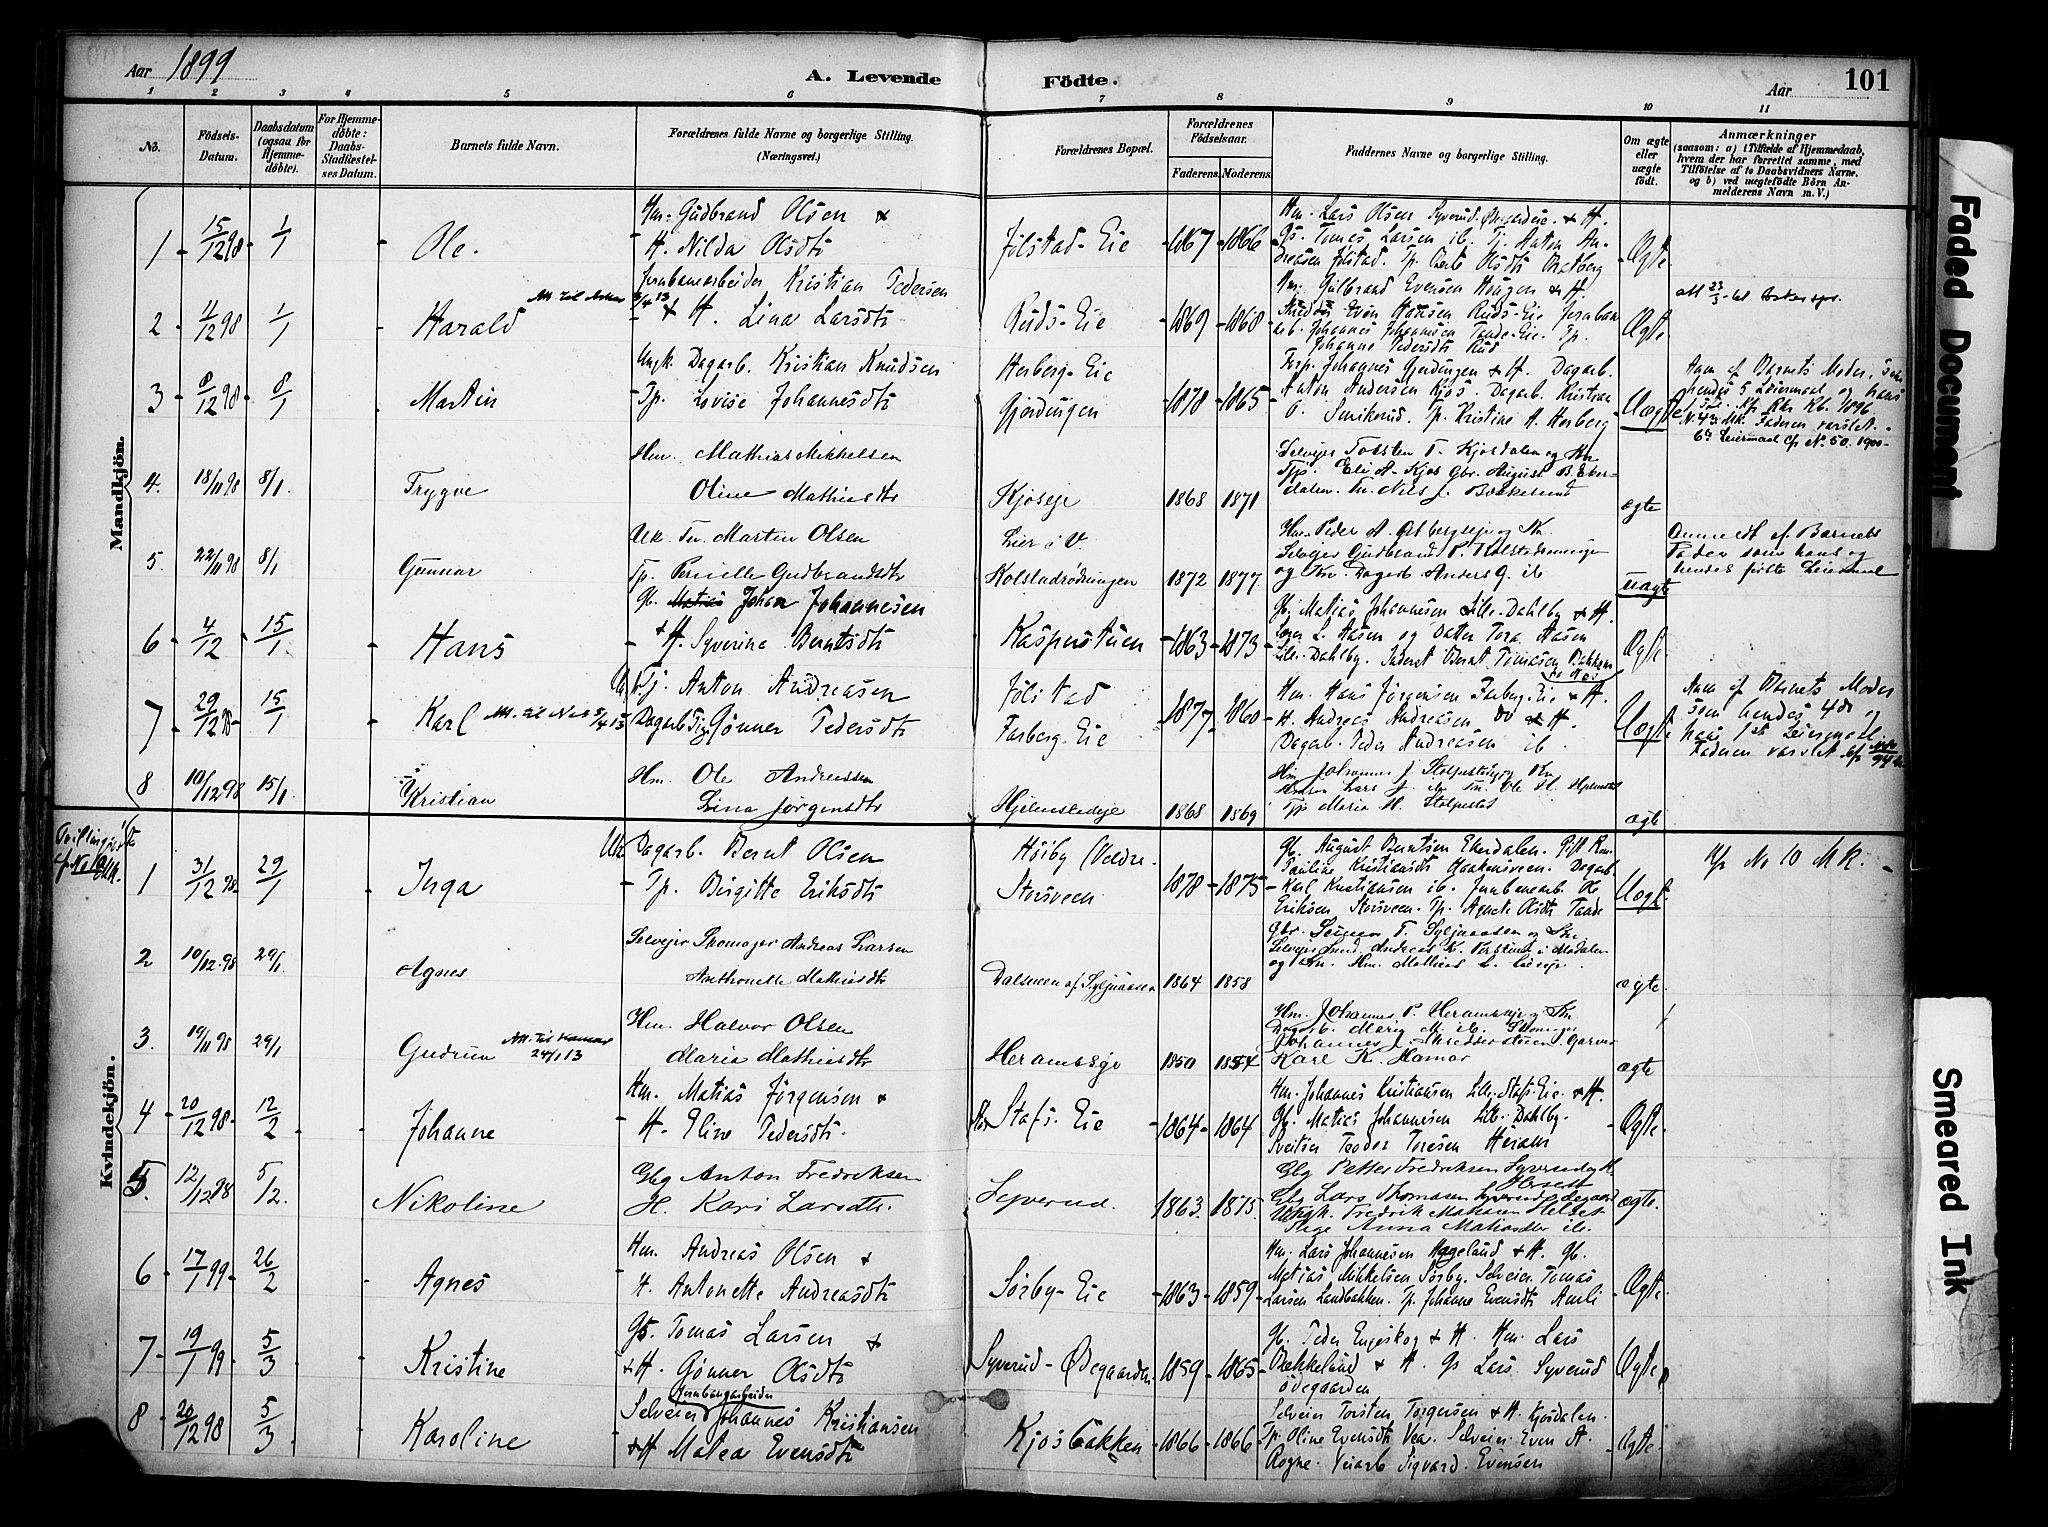 Aar 1899
A. Levende Födte.
Aar 101
1 2 3 4 5 6 7 8 9 10 11
No.
Födsels-Datum.
Daabsdatum (ogsaa for Hjemme-döbte).
For Hjemme-döbte: Daabs-Stadfæstel-ses Datum.
Barnets fulde Navn.
Forældrenes fulde Navne og borgerlige Stilling. (Næringsvei.)
Forældrenes Bopæl.
Forældrenes Födselsaar.
Faderens. Moderens.
Faddernes Navne og borgerlige Stilling.
Om ægte eller uægte födt.
Anmærkninger
(saasom: a) i Tilfælde af Hjemmedaab, hvem der har forrettet samme, med Tilföielse af to Daabsvidners Navne, og b) ved uægtefödte Börn An-melderens Navn m. V.)
Mandkjön.
1 15/12 98 1/1 Ole. Hm. Gudbrand Olsen &
H. Nilda Olsdtr Jölstad-Eie 1867 1866 Hm. Lars Olsen Syverud & H.
Gb. Tomas Larsen ib. Tj. Anton An-
dreasen Jölstad. Ægte
2 4/12 98 1/1 Harald Jernbanearbeider Kristian Pedersen
& H. Lina Larsdtr Ruds-Eie 1869 1868 Hm. Gulbrand Evensen Haugen & H.
Johannes Johannesen Taade-Eie. Tp.
Johanne Pedersdtr Rud Ægte
3 8/12 98 8/1 Martin Ungk. Dagarb. Kristian Knudsen
Tp. Lovise Johannesdtr Herberg-Eie
Gjördingen 1878 1865 Forp. Johannes Gjördingen & H. Dagarb.
Anton Andersen Kjos. Dagarb. Kristian
Tp. Kristine H. Herberg Uægte Anm. af Barnets Moder, som
hendes 5 Leiermaal og hans
Faderen varslet.
6te Leiermaal cfr No. 50. 1900
4. 18/11 98 8/1. Trygve Hm. Mathias Mikkelsen
Oline Mathiasdtr Kjöseje 1868 1871 Selvejer Torsten T. Kjosdalen og Kn
Tp. Eli A. Kjos Gbr. August B. Eker-
dalen. Tn. Nils J. Bækkelund ægte
5. 22/11 98 8/1 Gunnar Uk. Tn. Martin Olsen
Tp. Pernille Gudbrandsdtr Lier i V.
Kolstadrödningen 1872 1877. Hm. Peder A.
Selvejer Gudbrand P. Kolstadrödningen
og Kn. Dagarb. Anders G. ib uægte Anmeldt af Barnets
Fader som hans og
hendes förste Leiermaal
6 4/12 15/1 Hans Gb. Johan Johannesen
& H. Syverine Berntsdtr Kasperstuen 1863 1873 Gb. Matias Johannesen Lille-Dahlby & H.
L. Aasen og Datter Tora Aasen
Lille-Dahlby. Inderst Bernt Tomasen Bakken Ægte
7 29/12 98 15/1 Karl Att. til Nes 5/4 13 Uk. Tj. Anton Andreasen
Dagarb. Tp. Gönner Pedersdtr Jölstad
Farberg-Eie 1877 1860 Hm. Hans Jörgensen Farberg-Eie & H.
H. Andreas Andreasen do & H.
Dagarb. Peder Andreasen ib. Uægte Anm. af Barnets Moder
som hendes 4de og
hans 1ste Leiermaal.
Faderen varslet
8 10/12 98 15/1 Kristian Hm. Ole Andreassen
Lina Jörgensdtr Hjelmstadeje 1868 1869 Hm Johannes J. Stolpestadeje og Kn
Lars J. ib Tn. Ole H. Hjelmstad
Tp Maria H. Stolpestad ægte
Kvindekjön.
Tvillingsöster
1 31/12 98 29/1 Inga Uk Dagarb. Bernt Olsen
Tp. Birgitte Eriksdtr Höiby (Veldre.
Storsveen 1878 1875 Gb. August Berntsen Ekerdalen. Gift Kone
Pauline Kristiansdtr Haakensveen. Dagarb.
Karl Kristiansen ib. Jernbanearb. Ole
Eriksen Storsveen. Tp. Agnete Olsdtr Taade Uægte Cfr No 10 M.K.
2 10/12 98 29/1. Agnes Selvejer Skomager Andreas Larsen
Anthonette Mathiasdtr Dalsveen af Syljuaasen 1864 1858 Gbr. T. Syljuaasen og Kn.
og Kn. Hm. Mathias L. ægte
3. 19/11 98 29/1 Gudrun Att. til Hamar 24/1 13 Hm. Halvor Olsen
Maria Mathiasdtr Heramseje 1850 1854 Hm. Johannes P. Heramseje og Kn
Dagarb. Marig M. ib. Skomager
Johannes J. Skredderstuen. Garver
Karl K. Hamar ægte
4 20/12 98 12/2 Johanne Hm. Matias Jörgensen &
H. Eline Pedersdtr. Stafs-Eie 1864 1864 Hm. Johannes Kristiansen Lille-Stafs-Eie & H.
Gb. Matias Johannesen Lille-Dahlby.
Sveitser Teodor Toresen Heram Ægte
5. 12/12 98 5/2. Nikoline Gbg Anton Fredriksen
H. Kari Larsdtr. Syverud. 1863. 1875. Gbg Petter Fredriksen Syverud
Gbg Lars Thomasen Syverudödegaard
Ungk. Fredrik Matisen Helset
Pige Anna Matiasdtr ib. ægte.
6 17/1 99 26/2 Agnes Hm. Andreas Olsen &
H. Antonette Andreasdtr Sörby-Eie 1863 1859 Hm. Lars Johannesen Hageland & H. Gb.
Matias Mikkelsen Sörby. Selveier Tomas
Larsen Landbakken. Tp. Johanne Evensdtr Amli Ægte
7 19/1 99 5/3 Kristine Gb. Tomas Larsen &
& H. Gönner Olsdtr Syverud-Ödegaarden 1859 1865 Gb. Peder Engeskog & H. Hm. Lars
Bækkelund & H. Gb Lars Syverud
ödegaarden Ægte
8 20/12 98 5/3 Karoline Selveier Jernbanearbeider Johannes Kristiansen
& H Matea Evensdtr Kjosbakken 1866 1866 Selveier Torsten Torgersen & H. Kjosdalen.
Tp. Oline Evensdtr Vea. Selveier Even A.
Rogne. Veiarb Sigvard Evensen Ægte
Faded Document
Smeared Ink